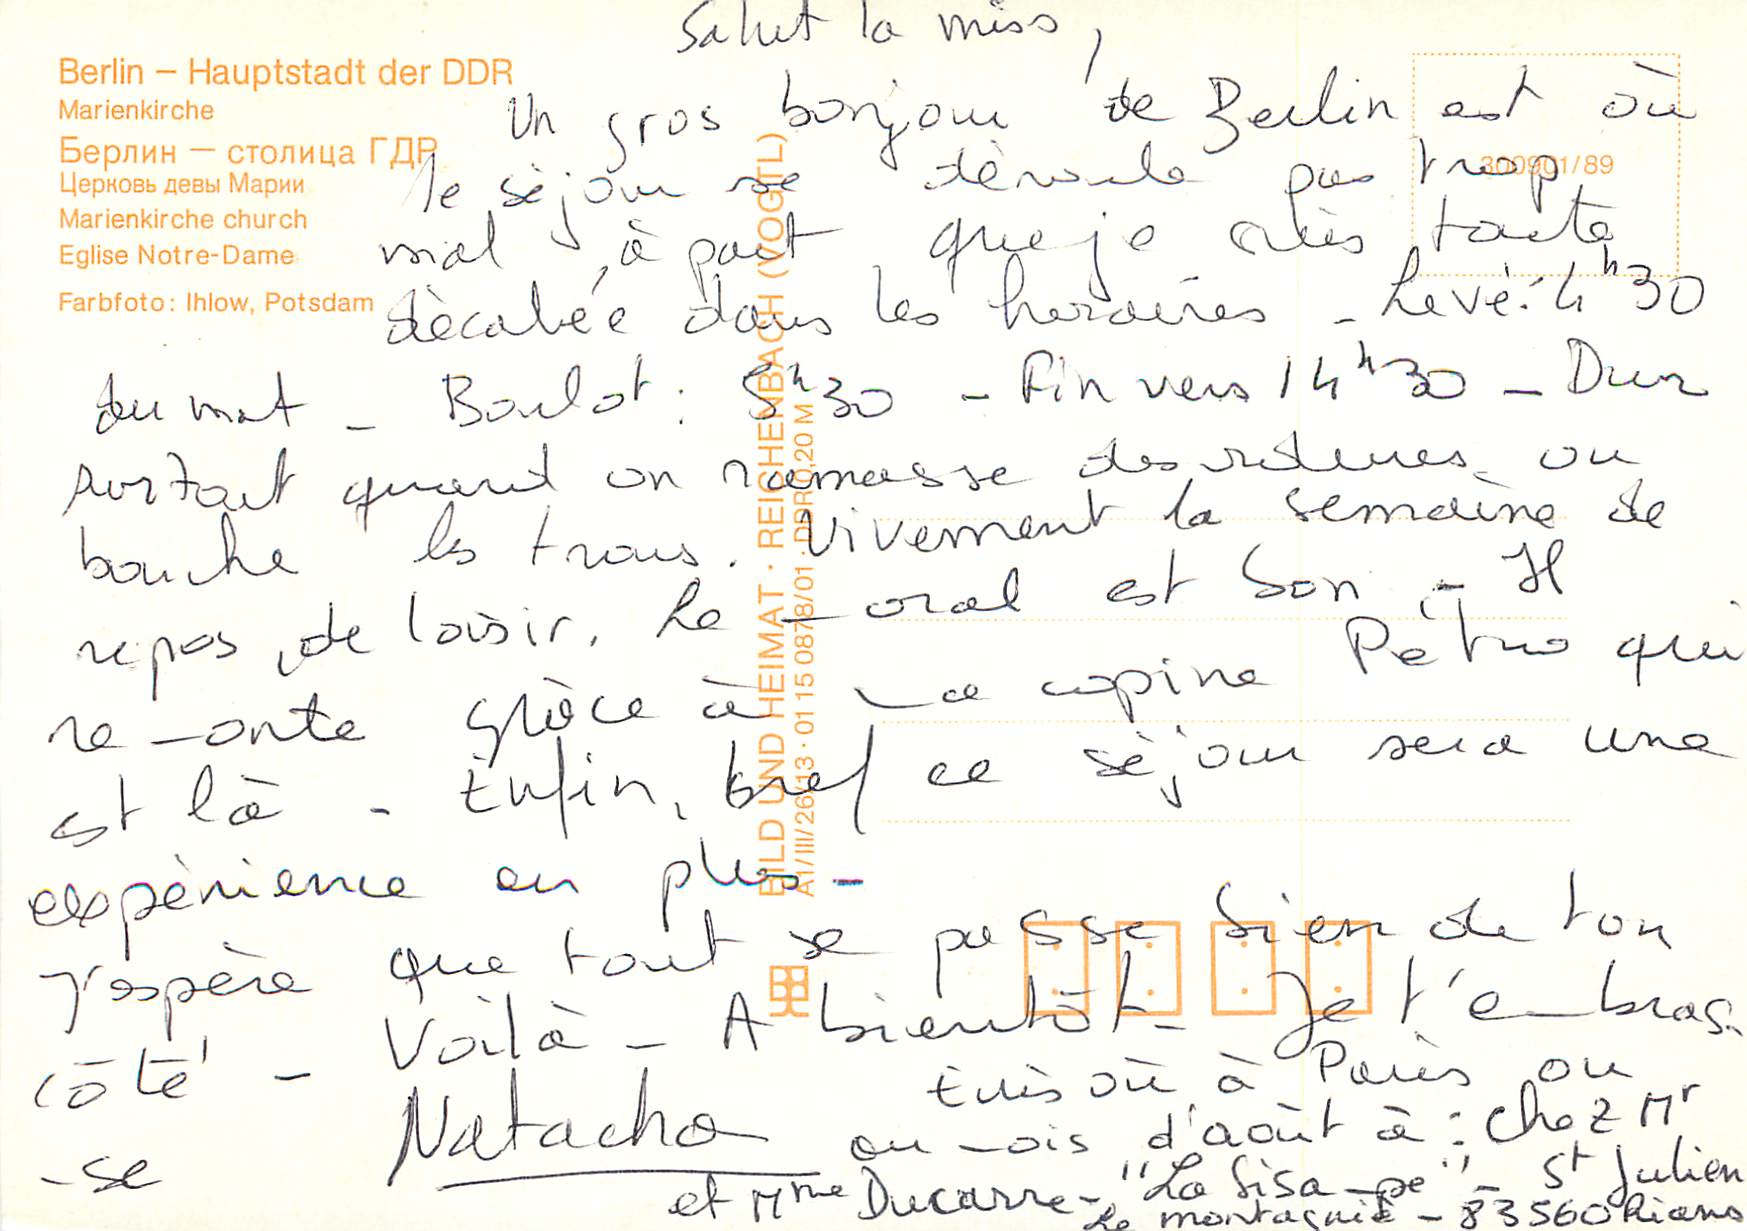 Berlin – Hauptstadt der DDR
Marienkirche
Берлин — столица ГДР
Церковь девы Марии
Marienkirche church
Eglise Notre-Dame
Farbfoto: Ihlow, Potsdam
300901/89
BILD UND HEIMAT · REICHENBACH (VOGTL)
A1/III/26/13 · 01 15 0878/01 · DDR 0,20 M
Salut la miss,
Un gros bonjour de Berlin est où
le séjour se déroule pas trop
mal, à part que je suis toute
décalée dans les horaires – Levé: 4h30
du mat – Boulot: 5h30 – Fin vers 14h30 – Dur
surtout quand on ramasse des ou
bouche les trous. Vivement la semaine de
repos, de loisir. Le moral est bon – Il
remonte grâce à ma copine Pétro qui
est là – Enfin, bref ce séjour sera une
expérience en plus –
J'espère que tout se passe bien de ton
côté – Voilà – A bientôt – Je t'embras-
-se
Natacha
Ecris où à Paris ou
au mois d'août à : chez Mr
et Mme Ducarre – "La " – St Julien
le montagnié – 83560 Rians